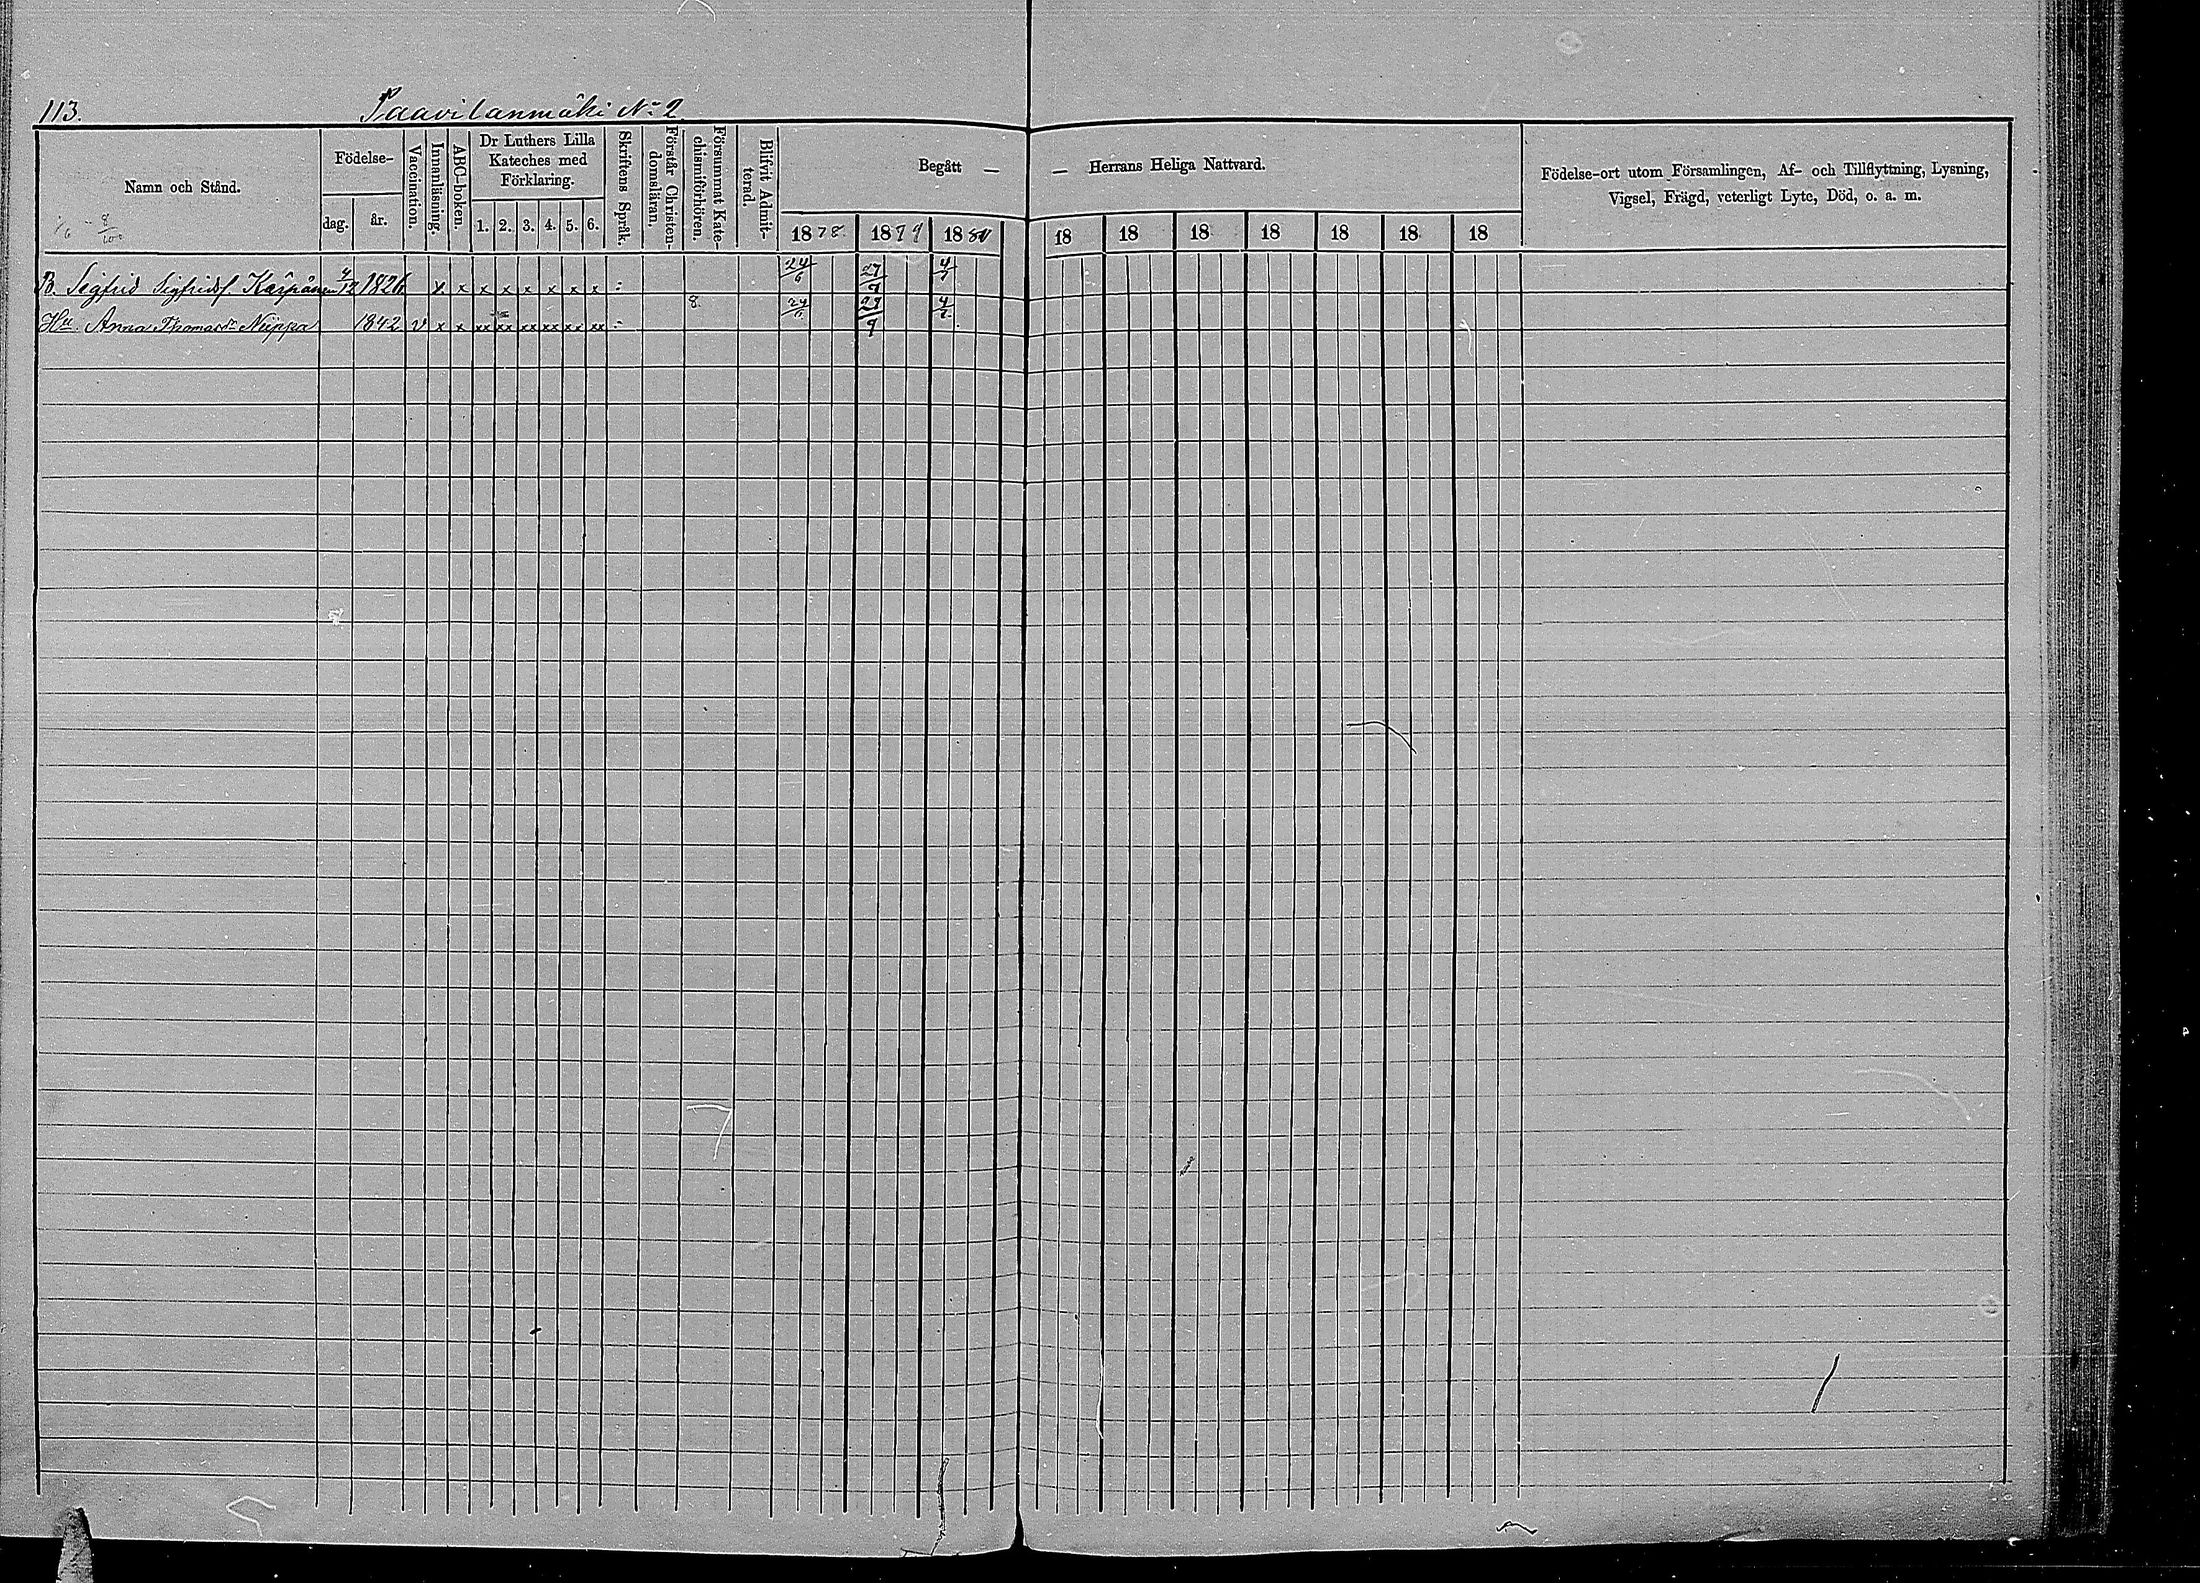 113. Paavilanmäki No 2
Namn och Stånd.
Födelse-
dag. år.
Vaccination.
Innanläsning.
ABC-boken.
Dr Luthers Lilla
Kateches med
Förklaring.
1. 2. 3. 4. 5. 6.
Skriftens Språk.
Förstår Christen-
domsläran.
Försummat Kate-
chismiförhören.
Blifvit Admit-
terad.
Begått — — Herrans Heliga Nattvard.
1878. 1879 1880 18 18 18 18 18 18 18
Födelse-ort utom Församlingen, Af- och Tillflyttning, Lysning,
Vigsel, Frägd, veterligt Lyte, Död, o. a. m.
B. Sigfrid Sigfridsf. Kärpänen 4/12 1826 x x x x x x x x : 24/6 27/7 4/7
Hu. Anna Thomasdr Niippa 1842 v x x xx xx xx xx xx xx 8. 24/6 4/7